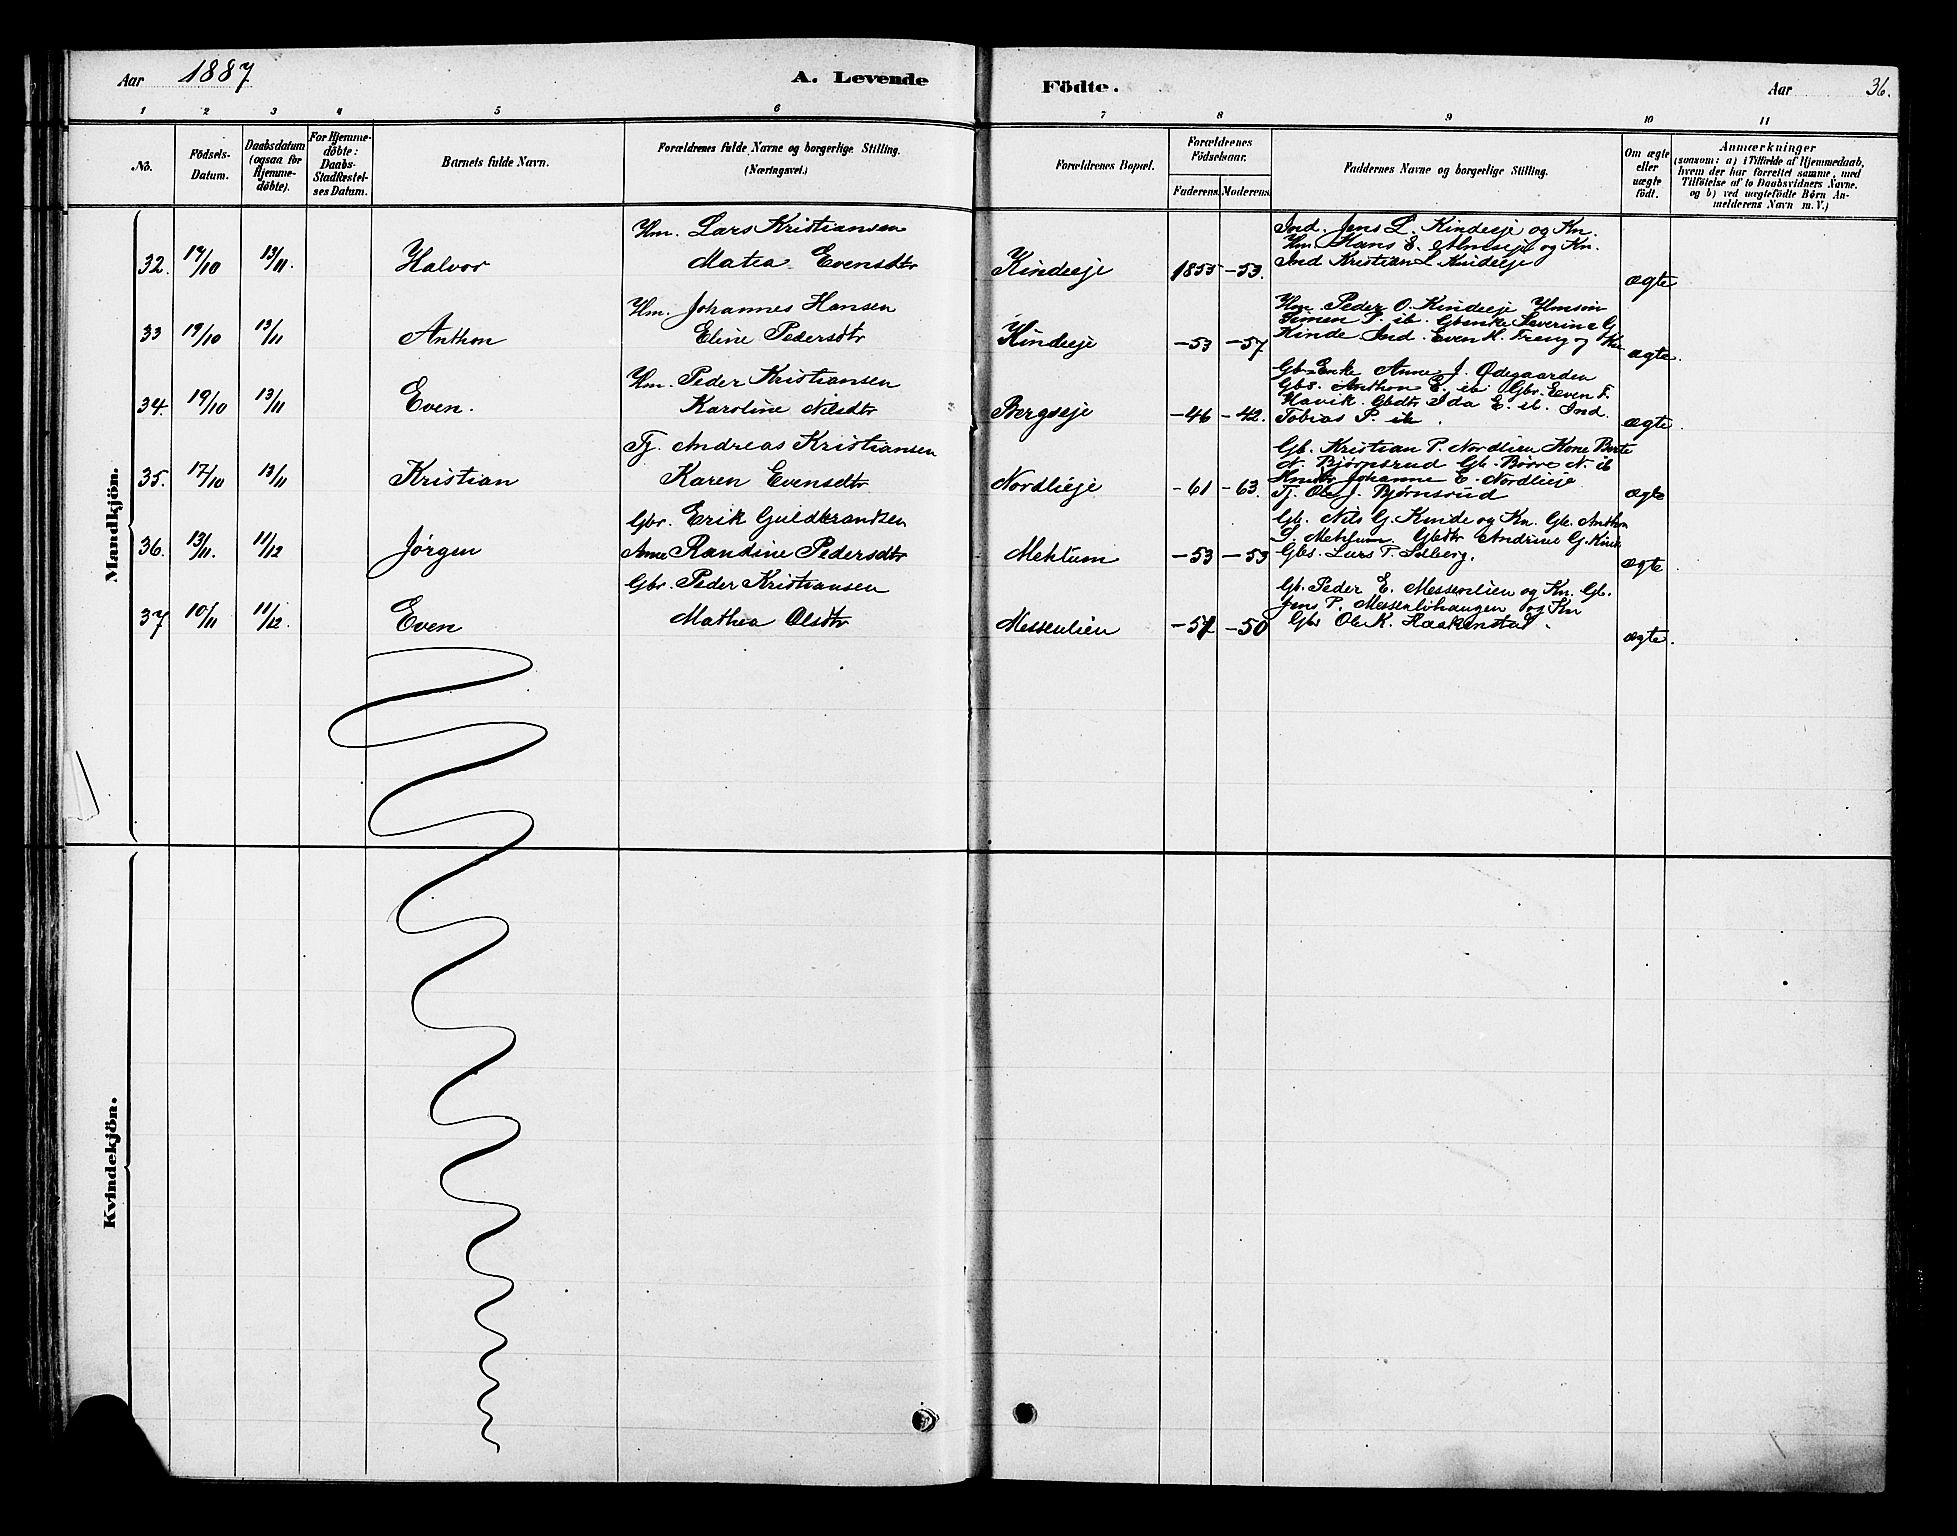 Aar 1887 A. Levende Födte. Aar 36.
1 2 3 4 5 6 7 8 9 10 11
No.
Födsels-Datum.
Daabsdatum (ogsaa for Hjemme-döbte).
For Hjemme-döbte: Daabs-Stadfæstel-ses Datum.
Barnets fulde Navn.
Forældrenes fulde Navne og borgerlige Stilling. (Næringsvei.)
Forældrenes Bopæl.
Forældrenes Födselsaar.
Faderens. Moderens.
Faddernes Navne og borgerlige Stilling.
Om ægte eller uægte födt.
Anmærkninger
(saasom: a) i Tilfælde af Hjemmedaab,
hvem der har forrettet samme, med
Tilföielse af to Daabsvidners Navne.
og b) ved uægtefödte Börn An-
melderens Navn m. V.)
Mandkjön.
Hm. Lars Kristiansen
Ind. Jens L. Kindseje og Kn.
Hm. Hans E. Almseje og Kn.
32. 17/10 13/11. Halvor Matea Evensdtr Kindseje 1855 -53. Ind Kristian L Kindseje ægte
Hm. Johannes Hansen
Hm. Peder O. Kindseje Hmsøn
Simen P. ib. Gbenke Severine G
33 19/10 13/11 Anthon Eline Pedersdtr Kindseje -53 -57 Kinde. Ind. Even H. Treng og Kn ægte.
Hm. Peder Kristiansen
Gb. Enke Anne J. Ødegaarden
Gbs. Anthon E. ib. Gbr. Even F.
Havik. Gbdtr Ida E. ib. Ind.
34. 19/10 13/11 Even. Karoline Nilsdtr Bergseje -46 -42. Tobias P. ib. ægte.
Tj. Andreas Kristiansen
Gb. Kristian P. Nordlien Kone Berte
N. Bjørnsrud Gb. Børre N. ib
Johanne E. Nordlieje
35. 17/10 13/11 Kristian Karen Evensdtr Nordlieje -61 -63. Tj. Ole J. Bjørnsrud ægte
Gbr. Erik Guldbrandsen
Gb. Nils G. Kinde og Kn. Gb. Anthon
S. Mehlum. Gbdtr Andrine G. Kinde
36. 13/11. 11/12 Jørgen Anne Randine Pedersdtr Mehlum -53 -53 Gbs. Lars P. Solberg. ægte.
Gbr. Peder Kristiansen
Gb. Peder E. Messenlien og Kn. Gb.
Jens P. Messenlihaugen og Kn
37 10/11 11/12. Even Mathea Olsdtr Messenlien -50 Gbr Ole K. Haakenstad. ægte.
Kvindekjön.